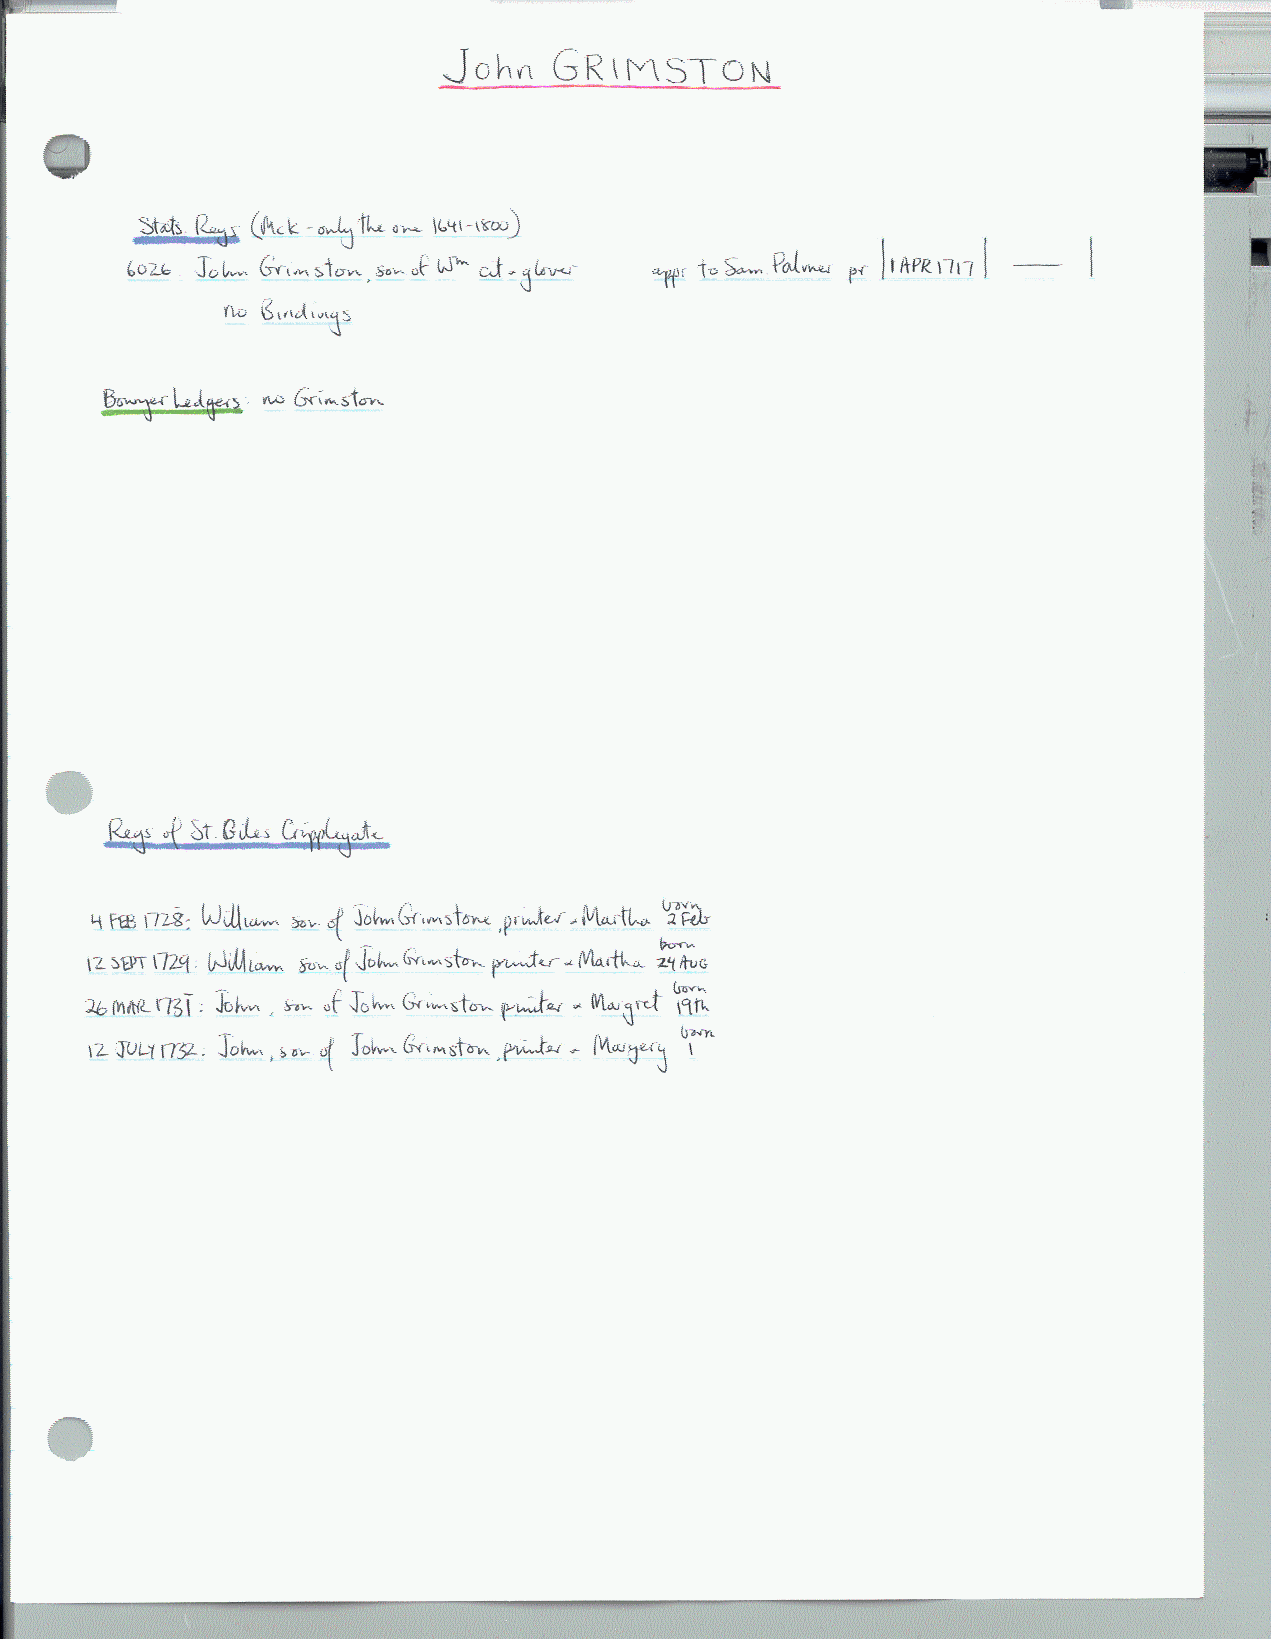 John GRIMSTON
Stats. Regs (McK - only the one 1641-1800)
6026. John Grimston, son of Wm cit + glover appr to Sam. Palmer pr | 1 APR 1717 | — |
no Bindings
Bowyer Ledgers: no Grimston
Regs of St. Giles Cripplegate
4 FEB 1728: William son of John Grimstone, printer + Martha born 2 Feb
12 SEPT 1729: William son of John Grimston printer + Martha born 24 AUG
26 MAR 1731: John, son of John Grimston printer + Margret born 19th
12 JULY 1732: John, son of John Grimston, printer + Margery born 1